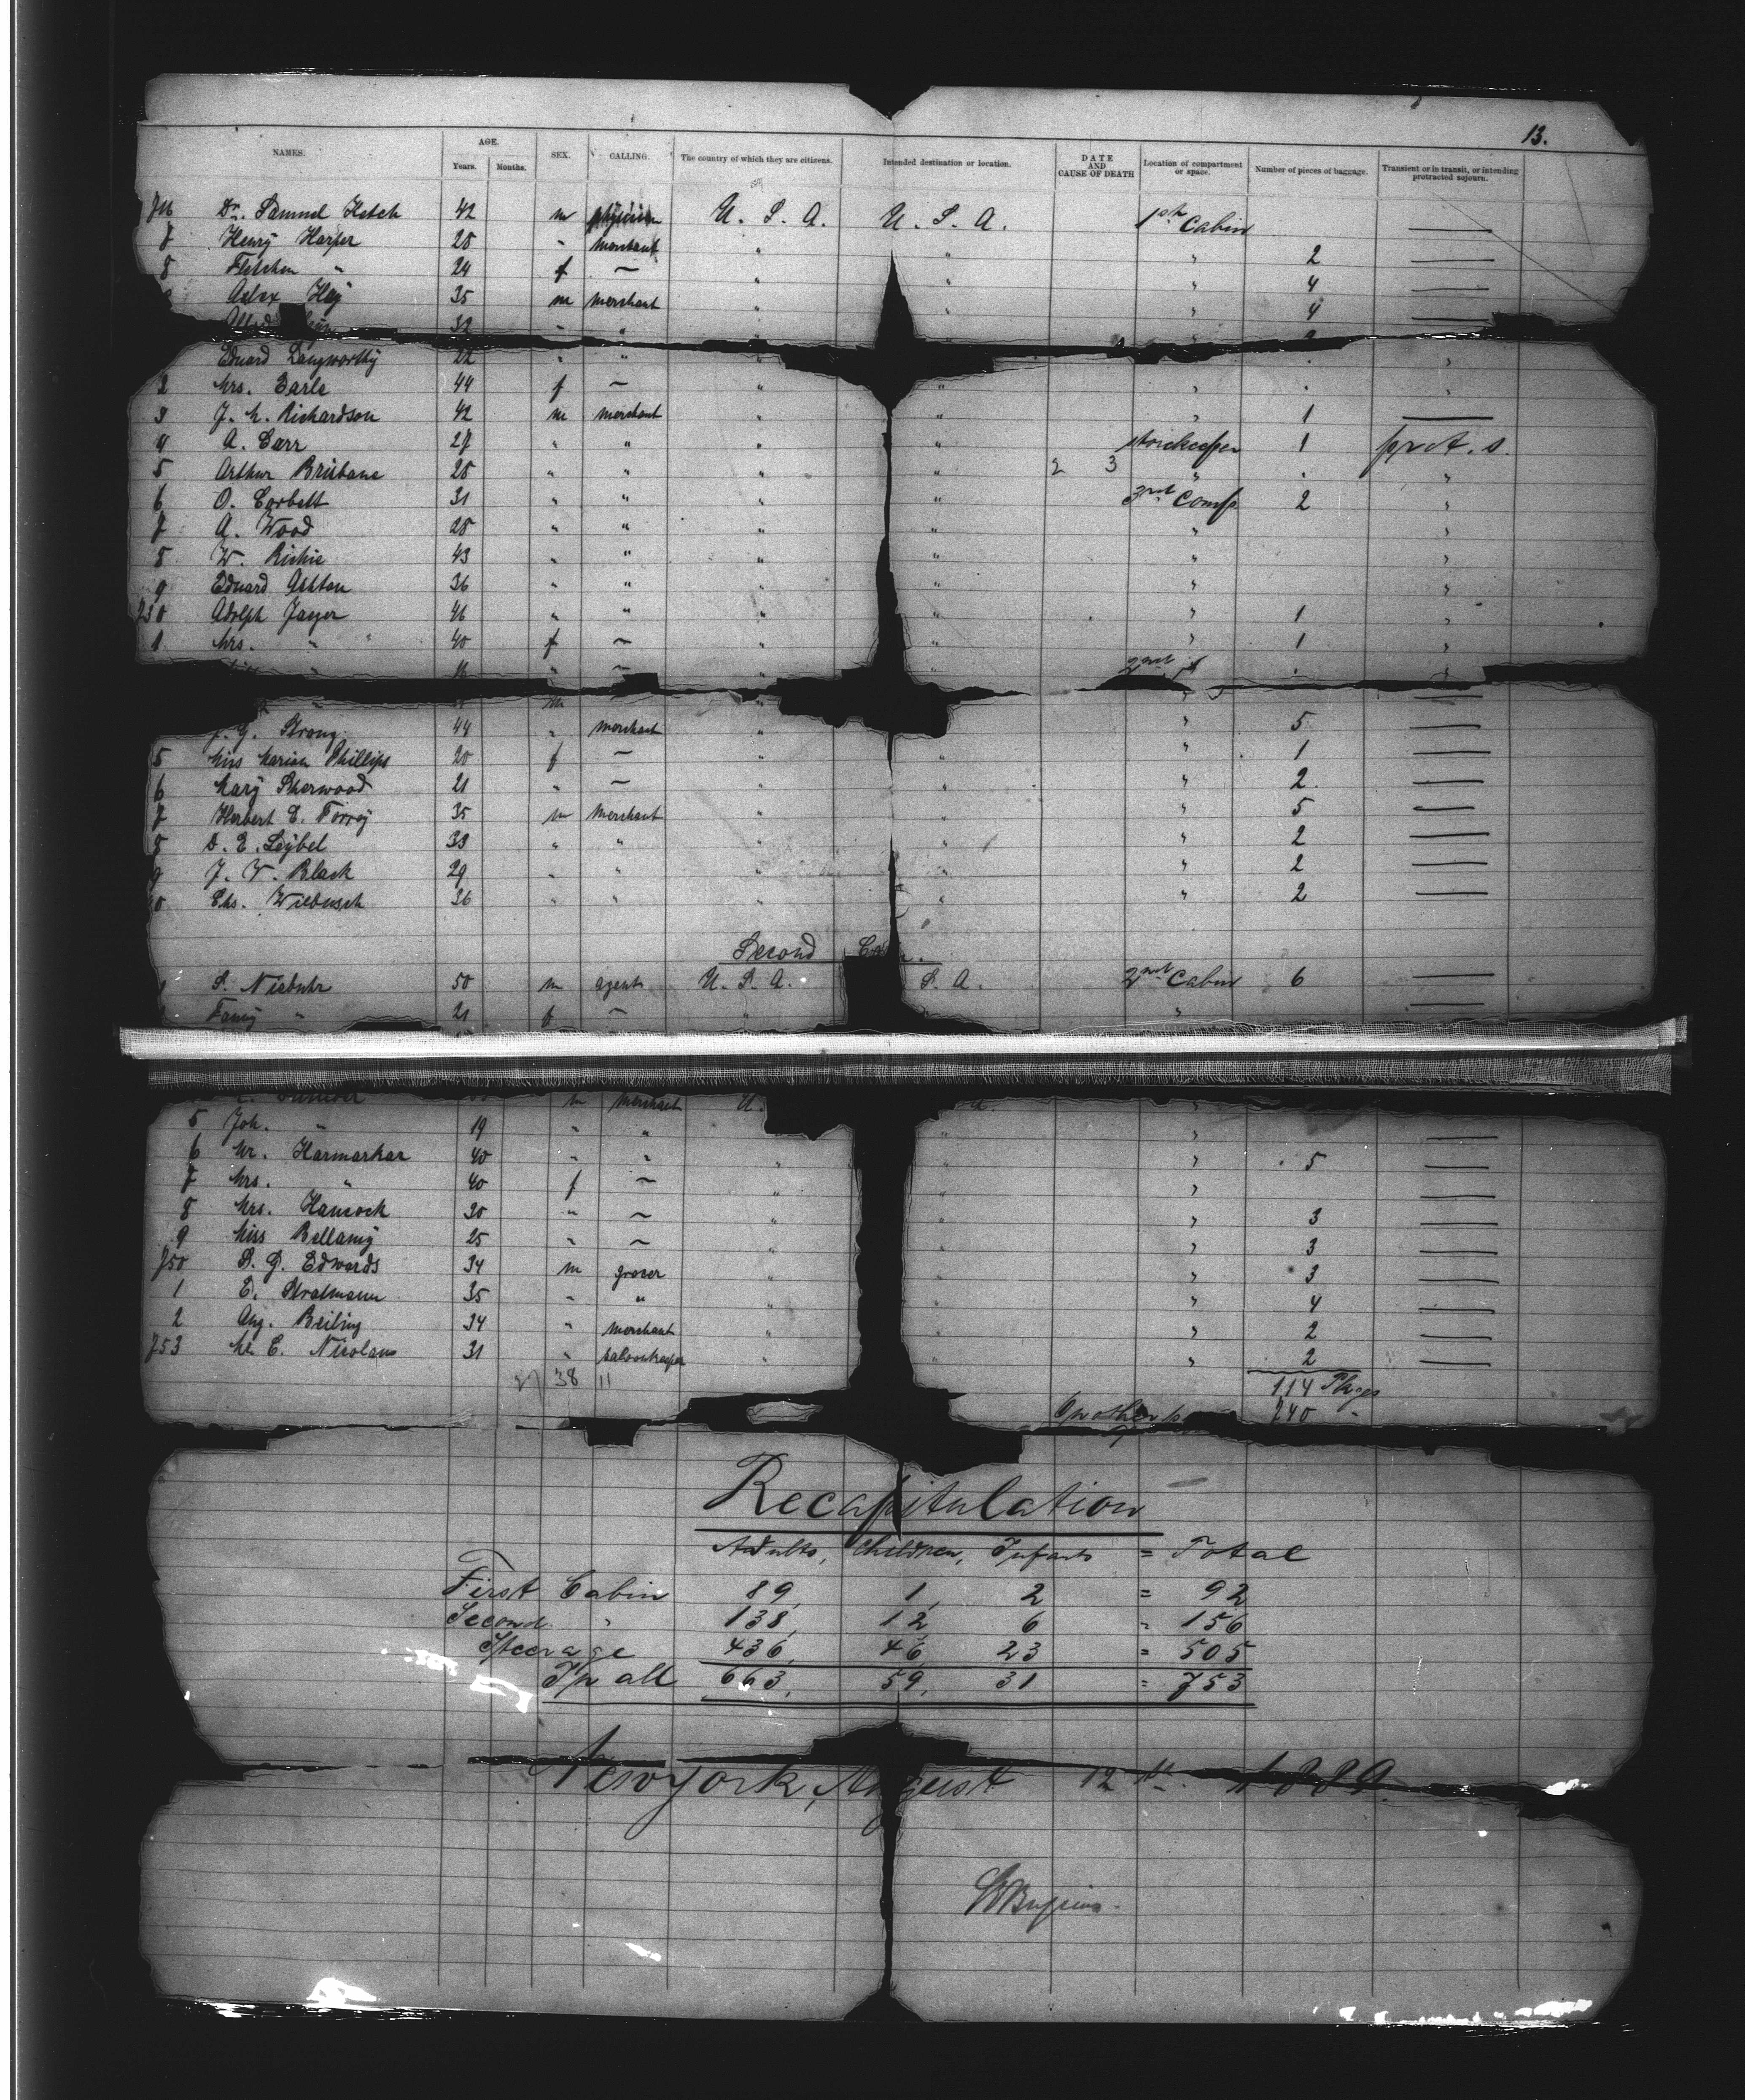 13.
NAMES. AGE. Years. Months. SEX. CALLING. The country of which they are citizens. Intended destination or location. DATE AND CAUSE OF DEATH Location of compartment or space. Number of pieces of baggage. Transient or in transit, or intending protracted sojourn.
Dr. Samuel 42 m physician U. S. A. U. S. A. 1st Cabin —
7 Henry Harper 28 " merchant " " " 2 —
8 " 24 f — " " " 4 —
Hey 35 m merchant " " " 4 —
32 " " "
Eduard Langworthy 22 " " "
2 Mrs. Earle 44 f — " " " " "
3 J. M. Richardson 42 m merchant " " " 1 —
4 A. Carr 27 " " " " storekeeper 1 prot. s.
5 Arthur Brisbane 28 " " " " 2 3 " " "
6 O. Corbett 31 " " " " 3rd Comp. 2 "
7 A. Wood 28 " " " " " "
8 W. Richie 43 " " " " " "
9 Eduard Ashton 36 " " " " " "
230 Adolph Jaeger 46 " " " " " 1 "
1 Mrs. " 40 f — " " " 1 "
" — " " 2nd "
" m " " —
J. G. Strong 44 " merchant " " 5 —
5 Miss Marian Phillips 20 f — " " " 1 —
6 Mary Sherwood 21 " — " " " 2 —
7 Herbert E. Torrey 35 m merchant " " " 5 —
8 D. E. Seybel 33 " " " " " 2 —
9 J. V. Black 29 " " " " " 2 —
Chs. Wiebusch 36 " " " " " 2 —
Second
S. Niebuhr 50 m agent U. S. A. S. A. 2nd Cabin 6 —
Fanny " 21 f — " " —
m merchant U.
5 Joh. " 19 " " " " —
6 Mr. Harmarkar 40 " " " " " 5 —
7 Mrs. " 40 f — " " " —
8 Mrs. Hancock 30 " — " " " 3 —
9 Miss Bellamy 25 " — " " " 3 —
750 S. G. Edwards 34 m grocer " " " 3 —
1 E. Stratmann 35 " " " " " 4 —
2 Aug. Beiling 34 " merchant " " " 2 —
753 E. Nicolaus 31 " saloonkeeper " " " 2 —
38 11 114 Pkges
240 "
Recapitulation
Adults, Children, Infants = Total
First Cabin 89, 1, 2 = 92
Second " 138, 12, 6 = 156
Steerage 436, 46, 23 = 505
In all 663, 59, 31 = 753
New York, August 12th 1889.